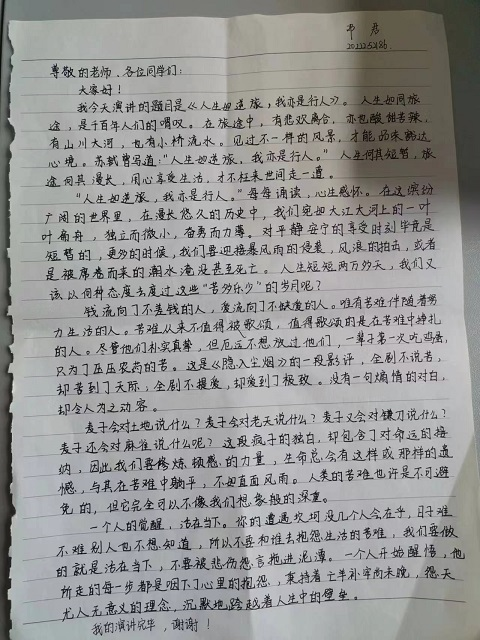 尊敬的老师、各位同学们:
大家好!
我今天演讲的题目是《人生如逆旅,我亦是行人》。人生如同旅
途,是千百年人们的喟叹。在旅途中,有悲欢离合,亦也酸甜苦辣,
有山川大河,也有小桥流水。见过不一样的风景,才能品味豁达
心境。苏轼曾写道:“人生如逆旅,我亦是行人。”人生何其短暂,旅
途何其漫长,用心享受生活,才不枉来世间走一遭。
“人生如逆旅,我亦是行人。”每每诵读,心生感怀。在这缤纷
广阔的世界里,在漫长悠久的历史中,我们宛如大江大河上的一叶
叶扁舟,独立而微小,奋勇而力薄。对平静安宁的享受时刻毕竟是
短暂的,更多的时候,我们要迎接暴风雨的侵袭,风浪的拍击,或者
是被席卷而来的潮水淹没甚至死亡。人生短短两万多天,我们又
该以何种态度去度过这些“苦多乐少”的岁月呢?
钱流向了不差钱的人,爱流向了不缺爱的人。唯有苦难伴随着努
力生活的人。苦难从来不值得被歌颂,值得歌颂的是在苦难中挣扎
的人。尽管他们朴实真挚,但厄运不想放过他们,一辈子第一次吃鸡蛋,
只为了压压农药的苦。这是《隐入尘烟》的一段影评,全剧不说苦,
却苦到了天际;全剧不提爱,却爱到了极致。没有一句煽情的对白,
却令人为之动容。
麦子会对土地说什么?麦子会对老天说什么?麦子又会对镰刀说什么?
麦子还会对麻雀说什么呢?这段疯子的独白,却包含了对命运的接
纳,因此我们要修炼顿感的力量,生命总会有这样或那样的遗
憾,与其在苦难中躺平,不如直面风雨。人类的苦难也许是不可避
免的,但它完全可以不像我们想象般的深重。
一个人的觉醒,活在当下。你的遭遇坎坷没几个人会在乎,日子难
不难别人也不想知道,所以不要和谁去抱怨生活的苦难,我们要做
的就是活在当下,不要被悲伤怨言拖进泥潭。一个人开始醒悟,他
所走的每一步都是咽下了心里的抱怨,秉持着亡羊补牢尚未晚,怨天
尤人无意义的理念,沉默地跨越着人生中的壁垒。
我的演讲完毕,谢谢!